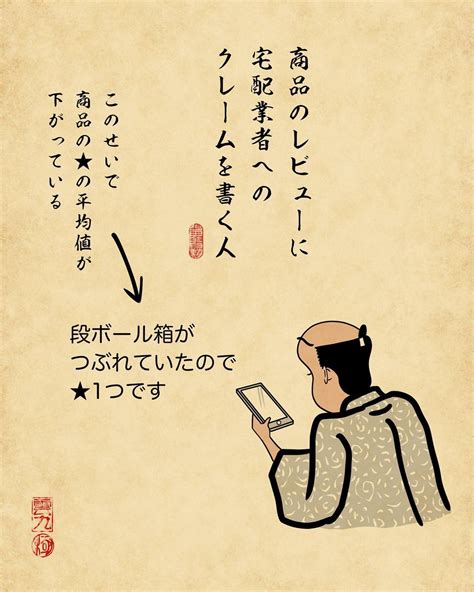 商品のレビューに
宅配業者への
クレームを書く人
このせいで
商品の★の平均値が
下がっている
段ボール箱が
つぶれていたので
★1つです